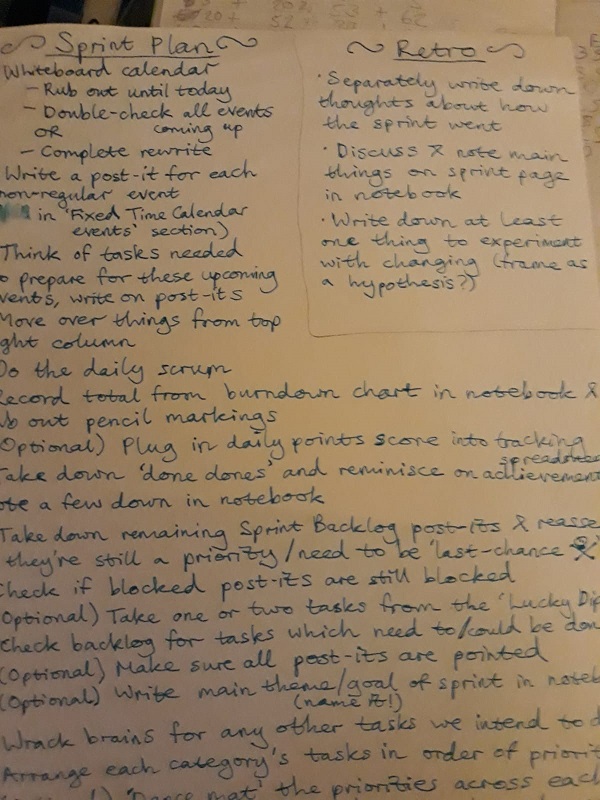 Sprint Plan
Whiteboard calendar
- Rub out until today
- Double-check all events
OR coming up
- Complete rewrite
Write a post-it for each
non-regular event
in 'Fixed Time Calendar
events' section)
Think of tasks needed
to prepare for these upcoming
events, write on post-its
Move over things from top
ght column
Do the daily scrum
Record total from burndown chart in notebook &
ub out pencil markings
(Optional) Plug in daily points score into tracking
spreadsheet
Take down 'done dones' and reminisce on achievement
ote a few down in notebook
Take down remaining Sprint Backlog post-its & reasse
they're still a priority/need to be 'last-chance
Check if blocked post-its are still blocked
(Optional) Take one or two tasks from the 'Lucky Dip
Check backlog for tasks which need to/could be don
(Optional) Make sure all post-its are pointed
(Optional) Write main theme/goal of sprint in noteb
(name it!)
Wrack brains for any other tasks we intend to d
Arrange each category's tasks in order of priorit
'Dance mat' the priorities across each
Retro
· Separately write down
thoughts about how
the sprint went
· Discuss & note main
things on sprint page
in notebook
· Write down at least
one thing to experiment
with changing (frame as
a hypothesis?)